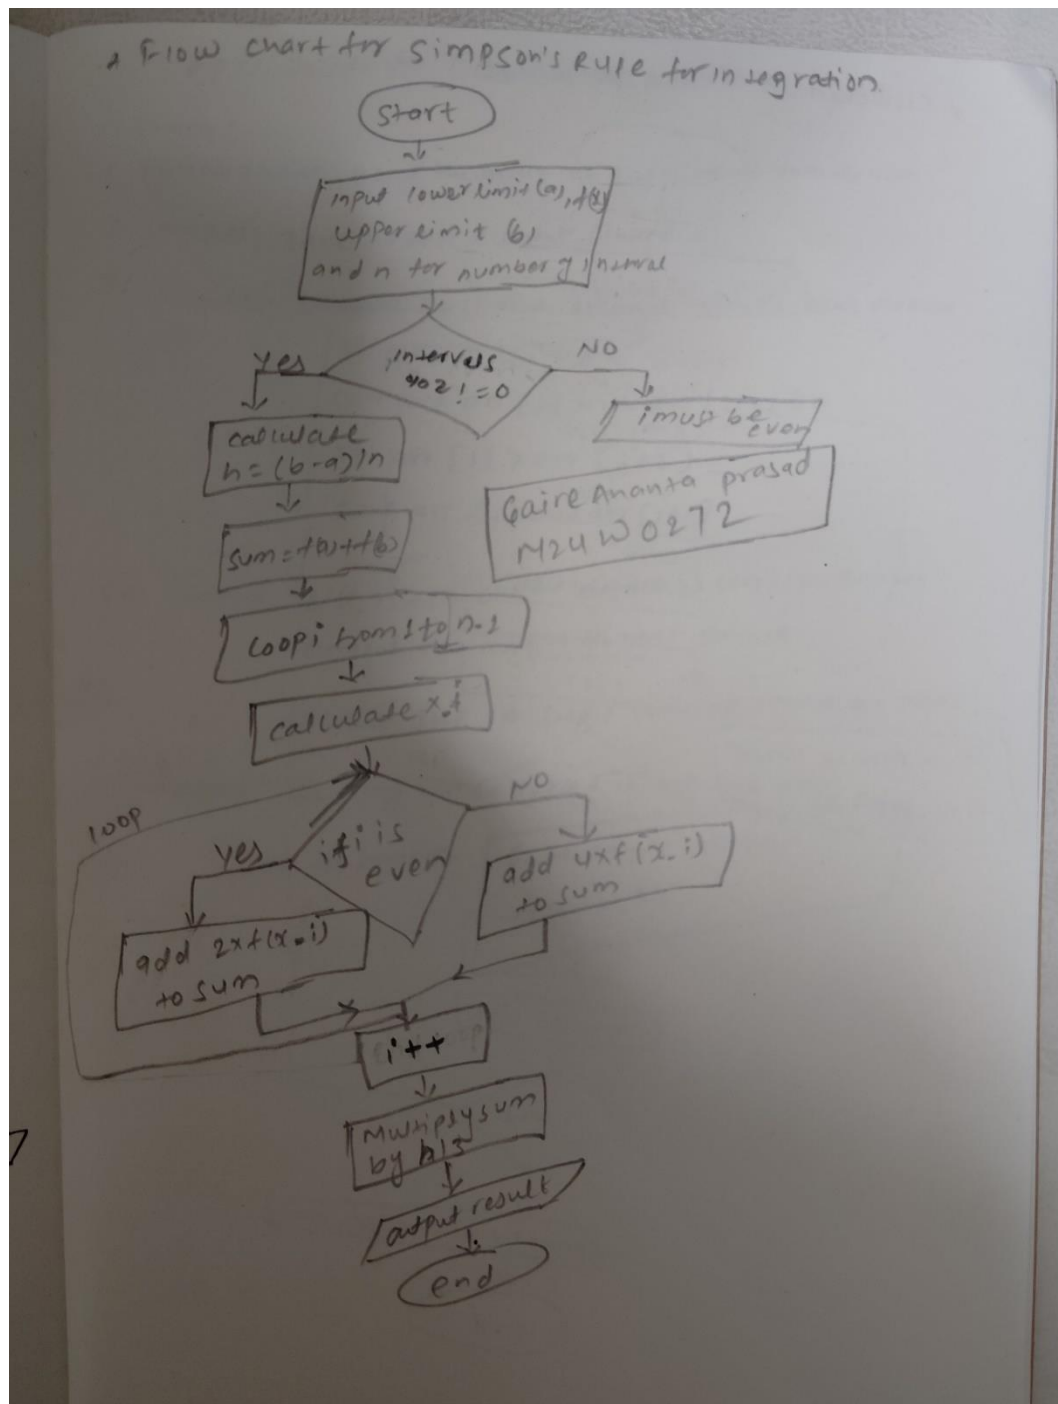 Flow chart for Simpson's Rule for integration.
start
input lower limit (a), f(x)
upper limit (b)
and n for number of interval
intervals
%2 != 0
Yes
NO
calculate
h = (b-a)/n
i must be
even
Gaire Ananta prasad
M24W0272
sum = f(a)+f(b)
Loop i from 1 to n-1
calculate x_i
loop
if i is
even
Yes
NO
add 2xf(x_i)
to sum
add 4xf(x_i)
to sum
i++
Multiply sum
by h/3
output result
end